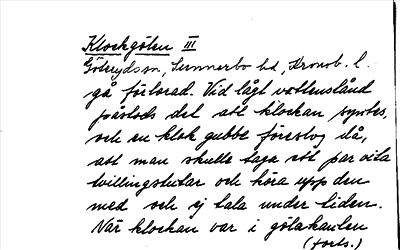 Klockgölen III
Göteryds sn, Sunnerbo hd, Kronob. l.
gå förlorad. Vid lågt vattenstånd
påstods det att klockan syntes,
och en klok gubbe föreslog då,
att man skulle taga ett par vita
tvillingstutar och höra upp den
med och ej tala under tiden.
När klockan var i gölakanten
(forts.)